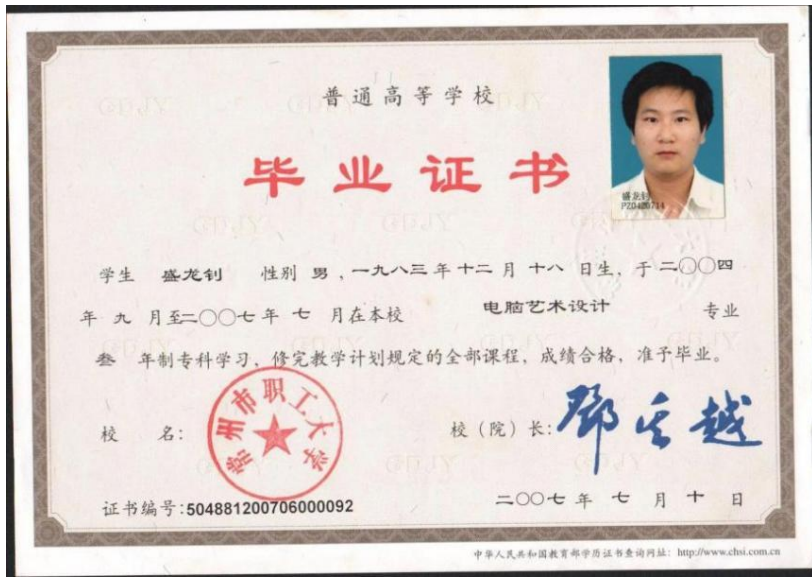 普通高等学校
毕业证书
盛龙钊
PZ0420714
学生 盛龙钊 性别 男 ，一九八三 年 十二 月 十八 日生，于 二〇〇四
年 九 月至二〇〇七 年 七 月在本校 电脑艺术设计 专业
叁 年制专科学习、修完教学计划规定的全部课程，成绩合格，准予毕业。
常州市职工大学
校 名： 校（院）长：
证书编号：504881200706000092 二〇〇七 年 七 月 十 日
中华人民共和国教育部学历证书查询网址：http://www.chsi.com.cn